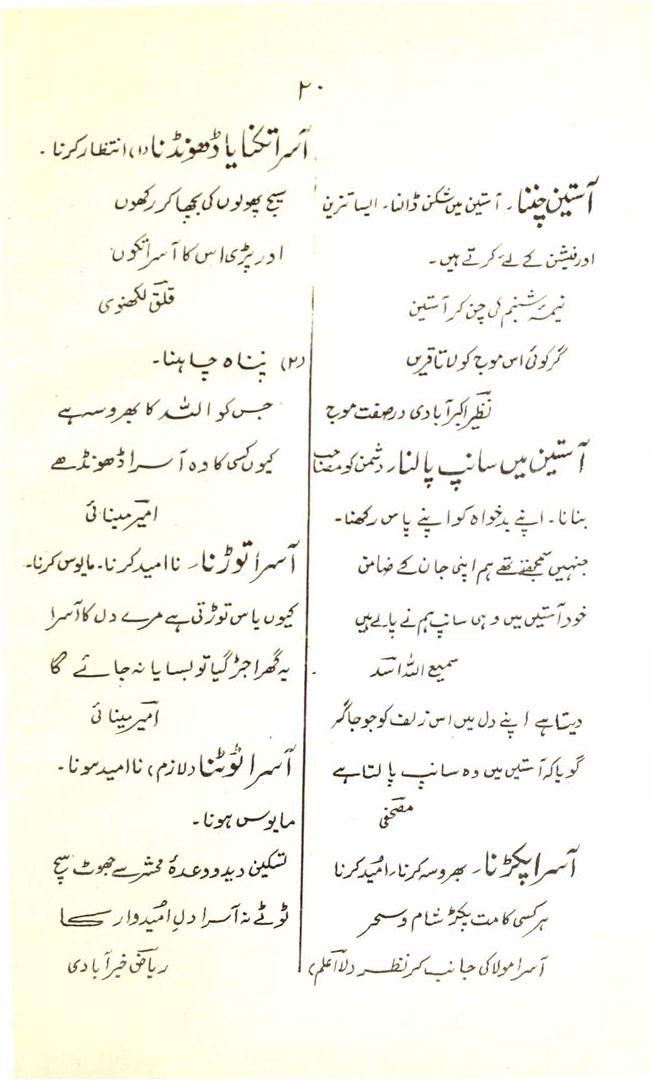 ۲۰
آستین چننا۔ آستین میں شکن ڈالنا۔ ایسا تزئین
اور فیشن کے لئے کرتے ہیں۔
نیمۂ شبنم کی چن کر آستین
گر کوئی اس موج کو لاتا قریں
نظیر اکبر آبادی در صفت موج
آستین میں سانپ پالنا۔ دشمن کو مصاحب
بنانا۔ اپنے بدخواہ کو اپنے پاس رکھنا۔
جنہیں سمجھتے تھے ہم اپنی جان کے ضامن
خود آستیں میں وہی سانپ ہم نے پالے ہیں
سمیع اللہ اسد
دیتا ہے اپنے دل میں اس زلف کو جو جا گر
گویا کہ آستیں میں وہ سانپ پالتا ہے
مصحفی
آسرا پکڑنا۔ بھروسہ کرنا۔ امید کرنا
ہر کسی کا مت پکڑ شام و سحر
آسرا مولا کی جانب کر نظر (لا اعلم)
آسرا تکنا یا ڈھونڈنا (۱) انتظار کرنا۔
سیج پھولوں کی بچھا کر رکھوں
اور پڑی اس کا آسرا تکوں
قلق لکھنوی
(۲) پناہ چاہنا۔
جس کو اللہ کا بھروسہ ہے
کیوں کسی کا وہ آسرا ڈھونڈھے
امیر مینائی
آسرا توڑنا۔ ناامید کرنا۔ مایوس کرنا۔
کیوں یاس توڑتی ہے مرے دل کا آسرا
یہ گھر اجڑ گیا تو بسایا نہ جائے گا
امیر مینائی
آسرا ٹوٹنا (لازم) ناامید ہونا۔
مایوس ہونا۔
تسکین دید و وعدۂ محشر سے جھوٹ سچ
ٹوٹے نہ آسرا دلِ امیدوار کا
ریاض خیر آبادی